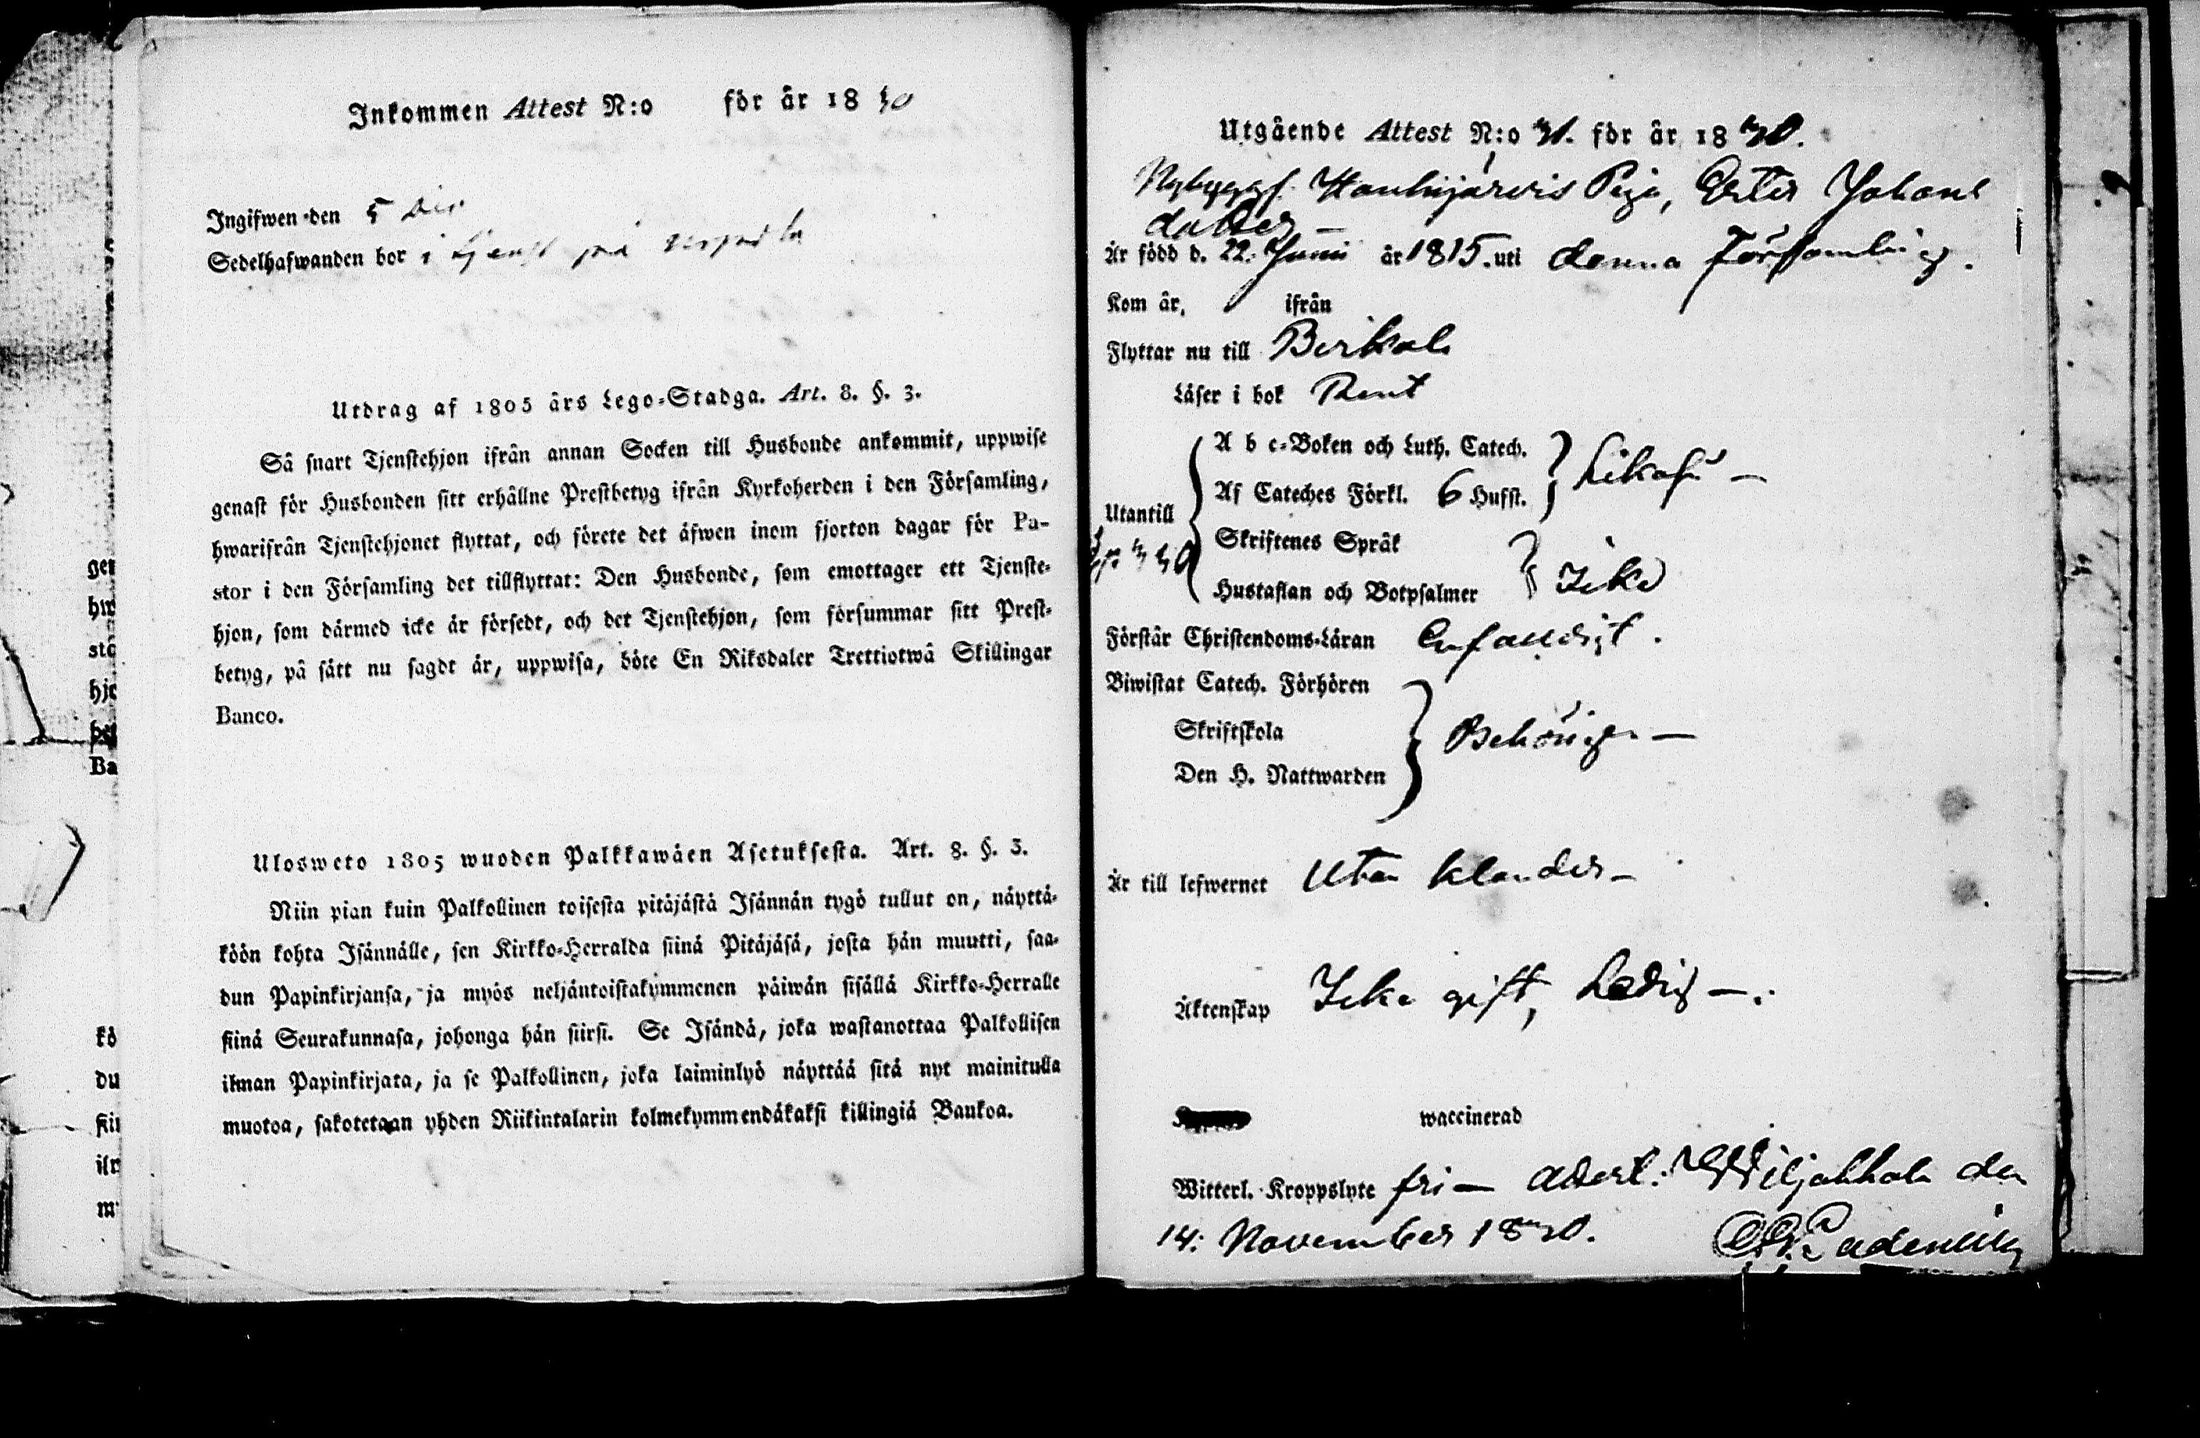 Inkommen Attest N:o för år 18 40
Ingifwen den 5 Dec
Sedelhafwanden bor i tjenst på
Utdrag af 1805 års Lego-Stadga. Art. 8. §. 3.
Så snart Tjenstehjon ifrån annan Socken till Husbonde ankommit, uppwise
genast för Husbonden sitt erhållne Prestbetyg ifrån Kyrkoherden i den Församling,
hwarifrån Tjenstehjonet flyttat, och förete det äfwen inom fjorton dagar för Pa-
stor i den Församling det tillflyttat: Den Husbonde, som emottager ett Tjenste-
hjon, som därmed icke är försedt, och det Tjenstehjon, som försummar sitt Prest-
betyg, på sätt nu sagdt är, uppwisa, böte En Riksdaler Trettiotwå Skillingar
Banco.
Ulosweto 1805 wuoden Palkkawäen Asetuksesta. Art. 8. §. 3.
Niin pian kuin Palkollinen toisesta pitäjästä Isännän tygö tullut on, näyttä-
köön kohta Isännälle, sen Kirkko-Herralda siinä Pitäjäsä, josta hän muutti, saa-
dun Papinkirjansa, ja myös neljäntoistakymmenen päiwän sisällä Kirkko-Herralle
siinä Seurakunnasa, johonga hän siirsi. Se Isändä, joka wastanottaa Palkollisen
ilman Papinkirjata, ja se Palkollinen, joka laiminlyö näyttää sitä nyt mainitulla
muotoa, sakotetaan yhden Riikintalarin kolmekymmendäkaksi killingiä Bankoa.
Utgående Attest N:o 31. för år 1840.
Hanhijärvis Piga, Ester Johans
datter
Är född d. 22. Junii år 1815. uti denna Församling.
Kom år, ifrån
Flyttar nu till Birkala
Läser i bok Rent
A b c-Boken och Luth. Catech.
Af Cateches Förkl. 6 Hufst. Likaså —
Utantill
Skriftenes Språk
Hustaflan och Botpsalmer Icke
Förstår Christendoms-Läran Enfaldigt.
Biwistat Catech. Förhören
Skriftskola Behörigen —
Den H. Nattwarden
Är till lefwernet Utan klander —
Äktenskap Icke gift, Ledig —.
waccinerad
Witterl. Kroppslyte fri — den
14. November 1840.